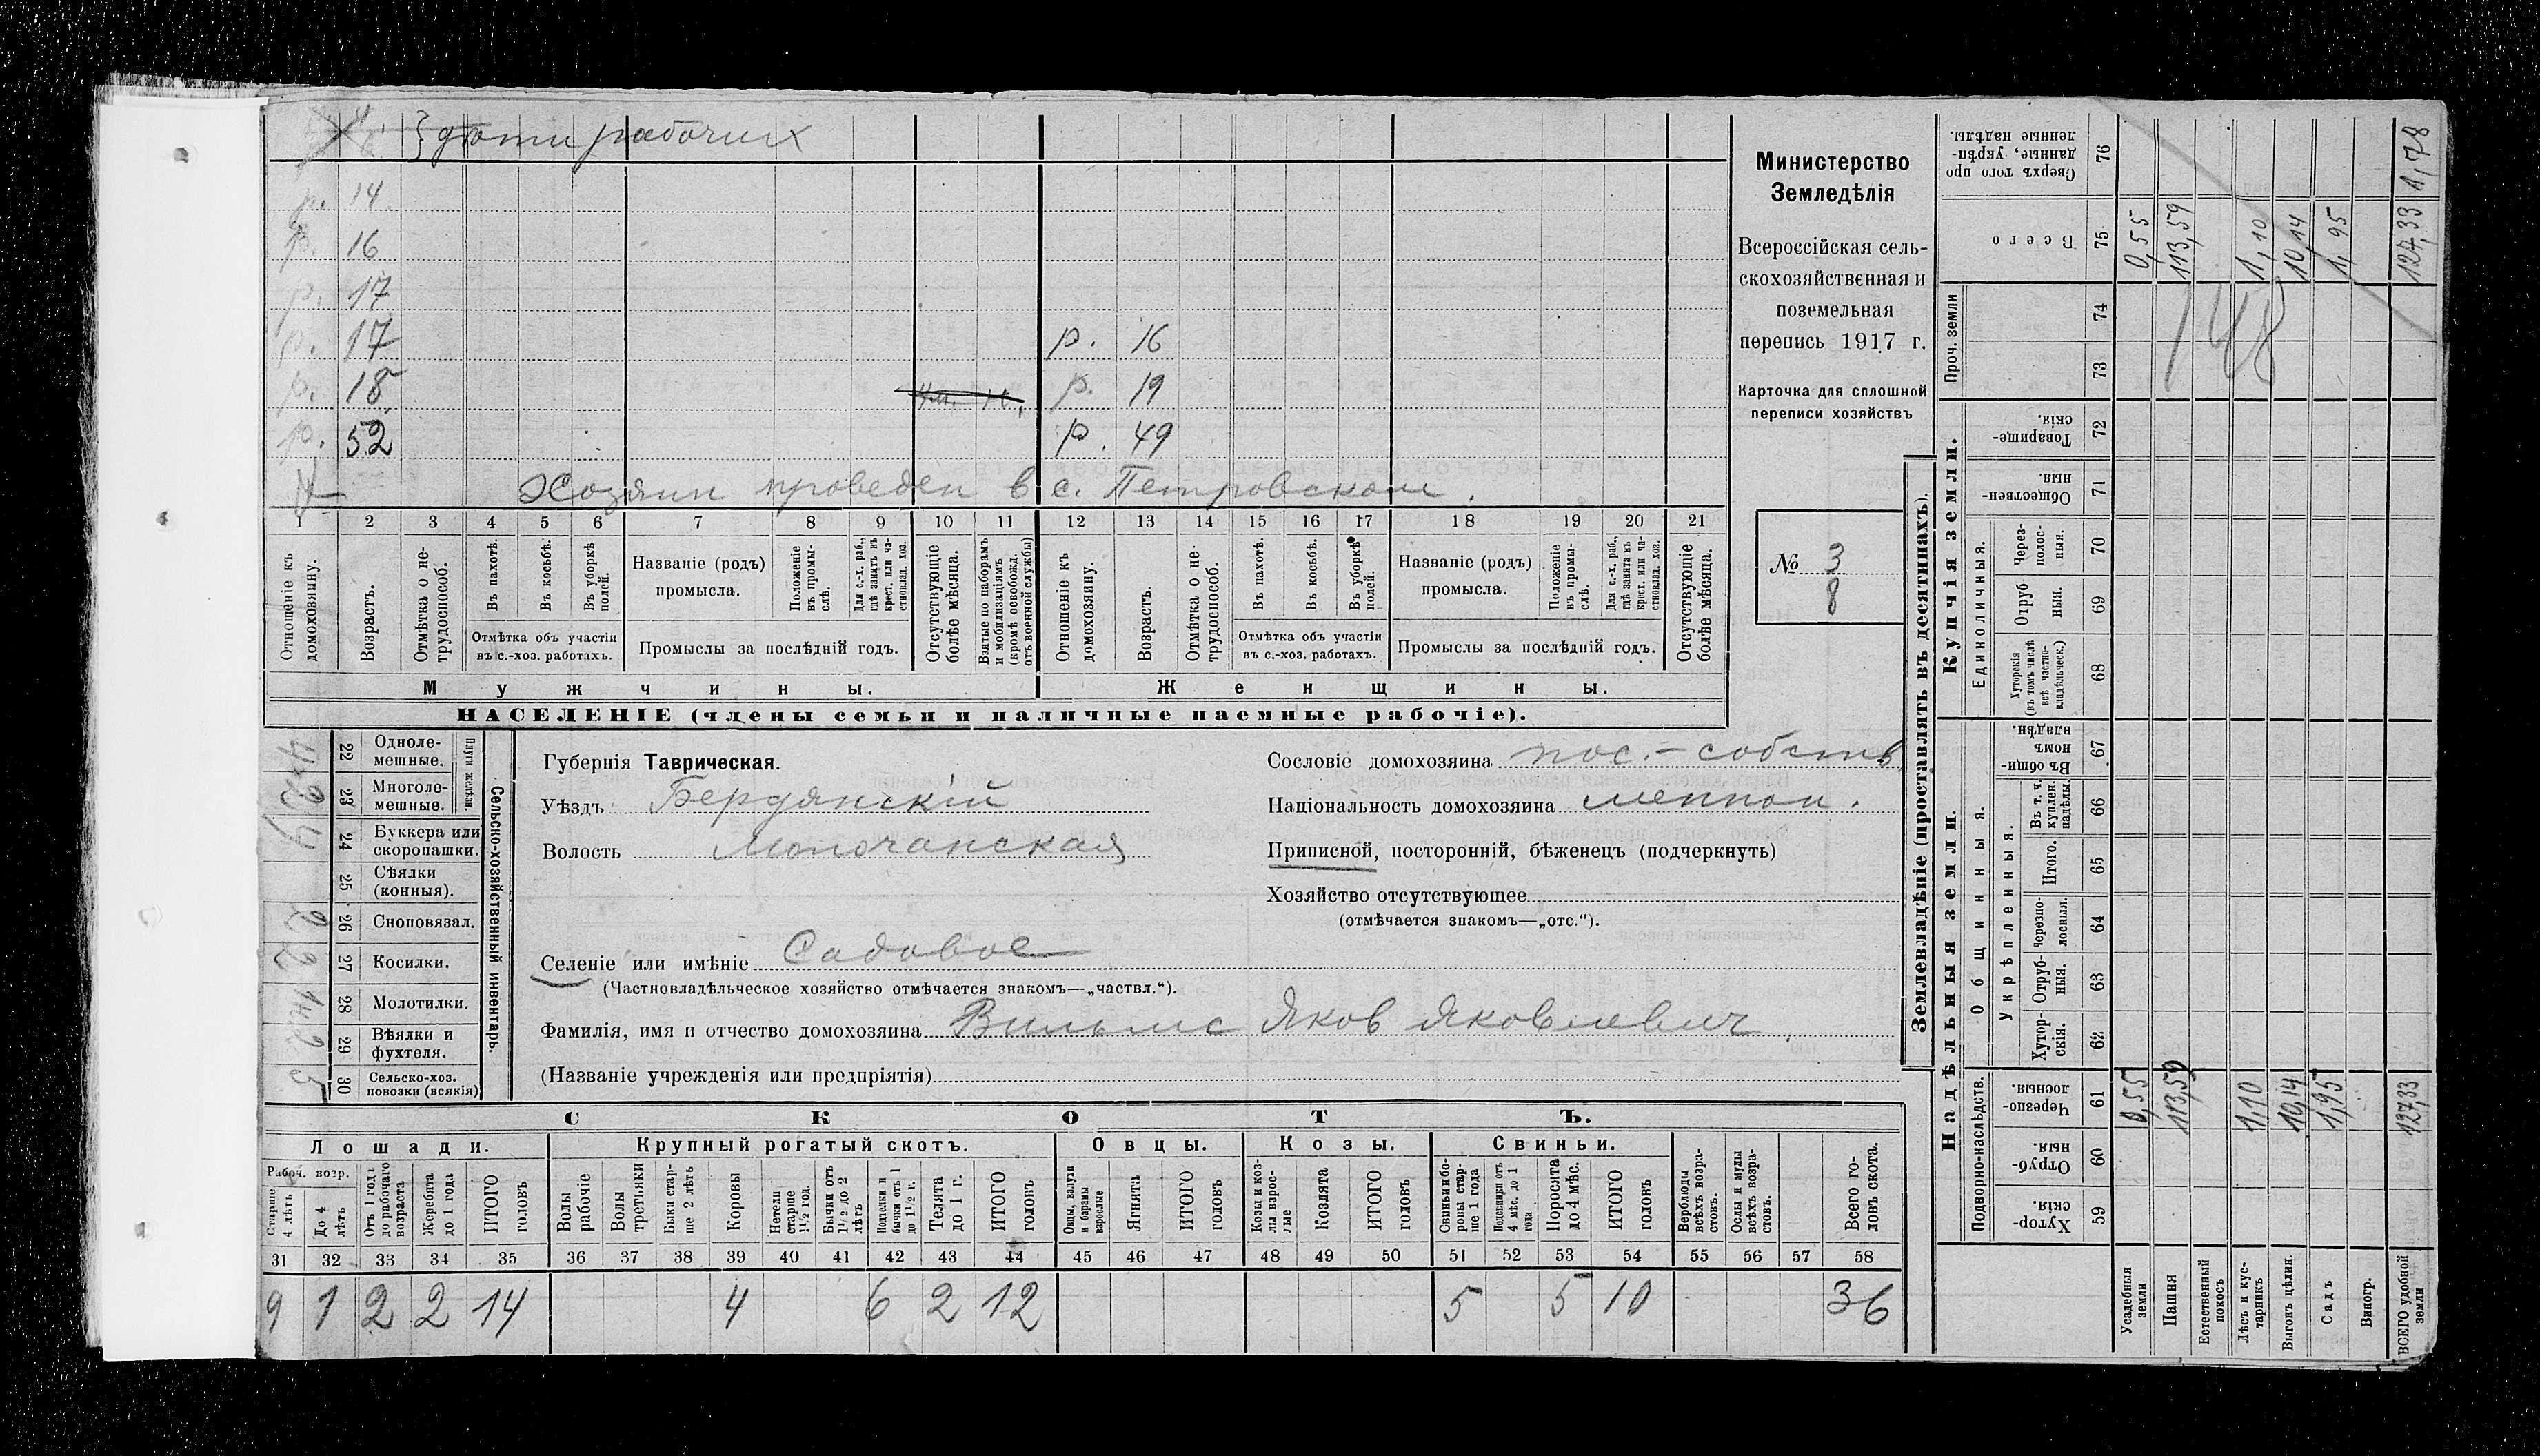 } дѣти рабочих
р. 14
р. 16
р. 17
р. 17 р. 16
р. 18 р. 19
р. 52 р. 49
Хозяин проведен в с. Петровском.
1 2 3 4 5 6 7 8 9 10 11 12 13 14 15 16 17 18 19 20 21
Отношеніе къ домохозяину.
Возрастъ.
Отмѣтка о не-трудоспособ.
Въ пахотѣ.
Въ косьбѣ.
Въ уборкѣ полей.
Отмѣтка объ участіи въ с.-хоз. работахъ.
Названіе (родъ) промысла.
Положеніе въ промы-слѣ.
Для с.-х. раб., гдѣ занятъ въ крест. или ча-стновлад. хоз.
Промыслы за послѣдній годъ.
Отсутствующіе болѣе мѣсяца.
Взятые по наборамъ и мобилизаціямъ (кромѣ освобожд. отъ военной службы)
Отношеніе къ домохозяину.
Возрастъ.
Отмѣтка о не-трудоспособ.
Въ пахотѣ.
Въ косьбѣ.
Въ уборкѣ полей.
Отмѣтка объ участіи въ с.-хоз. работахъ.
Названіе (родъ) промысла.
Положеніе въ промы-слѣ.
Для с.-х. раб., гдѣ занята въ крест. или ча-стновлад. хоз.
Промыслы за послѣдній годъ.
Отсутствующіе болѣе мѣсяца.
Мужчины.
Женщины.
НАСЕЛЕНІЕ (члены семьи и наличные наемные рабочіе).
Министерство
Земледѣлія
Всероссійская сель-
скохозяйственная и
поземельная
перепись 1917 г.
Карточка для сплошной
переписи хозяйствъ
№ 3
8
22 Одноле-мешные.
23 Многоле-мешные.
Плуги желѣзн.
24 Буккера или скоропашки.
25 Сѣялки (конныя).
26 Сноповязал. 2
27 Косилки. 2
28 Молотилки.
29 Вѣялки и фухтеля. 2
30 Сельско-хоз. повозки (всякія) 5
Сельско-хозяйственный инвентарь.
Губернія Таврическая.
Уѣздъ Бердянскій
Волость Молочанская
Селеніе или имѣніе Садовое
(Частновладѣльческое хозяйство отмѣчается знакомъ—„частвл.“).
Фамилія, имя и отчество домохозяина Вильмс Яков Яковлевич
(Названіе учрежденія или предпріятія)
Сословіе домохозяина пос.-собств.
Національность домохозяина меннон.
Приписной, посторонній, бѣженецъ (подчеркнуть)
Хозяйство отсутствующее
(отмѣчается знакомъ—„отс.“).
СКОТЪ.
Лошади. Крупный рогатый скотъ. Овцы. Козы. Свиньи.
Рабоч. возр.
Старше 4 лѣтъ
До 4 лѣтъ
Отъ 1 года до рабочаго возраста
Жеребята до 1 года
ИТОГО головъ
Волы рабочіе
Волы третьяки
Быки стар-ше 2 лѣтъ
Коровы
Нетели старше 1½ год.
Бычки отъ 1½ до 2 лѣтъ
Телки и бычки отъ 1 до 1½ г.
Телята до 1 г.
ИТОГО головъ
Овцы, валухи и бараны взрослые
Ягнята
ИТОГО головъ
Козы и коз-лы взрос-лые
Козлята
ИТОГО головъ
Свиньи и бо-ровы стар-ше 1 года
Подсвинки отъ 4 мѣс. до 1 года
Поросята до 4 мѣс.
ИТОГО головъ
Верблюды всѣхъ возра-стовъ.
Ослы и мулы всѣхъ возра-стовъ.
Всего го-ловъ скота.
31 32 33 34 35 36 37 38 39 40 41 42 43 44 45 46 47 48 49 50 51 52 53 54 55 56 57 58
9 1 2 2 14 4 6 2 12 5 5 10 36
Землевладѣніе (проставлять въ десятинахъ).
Надѣльныя земли.
Купчія земли.
Проч. земли
Подворно-наслѣдств.
Общинныя.
Укрѣпленныя.
Единоличныя.
59 Хутор-скія.
60 Отруб-ныя.
61 Черезпо-лосныя.
62 Хутор-скія.
63 Отруб-ныя.
64 Черезпо-лосныя.
65 Итого.
66 Въ т. ч. куплен. надѣлы.
67 Въ общи-номъ владѣн.
68 Хуторскія (въ томъ числѣ всѣ частно-владѣльческ.)
69 Отруб ныя.
70 Через-полос-ныя.
71 Обществен-ныя.
72 Товарище-скія.
73
74
75 Всего
76 Сверхъ того про данные, укрѣп-ленные надѣлы.
Усадебныя земли 0,55 0,55
Пашня 113,59 113,59
Естественный покосъ
Лѣсъ и кус-тарникъ 1,10 1,10
Выгонъ цѣлин. 10,14 10,14
Садъ 1,95 1,95
Виногр.
ВСЕГО удобной земли 127,33 127,33 1,78
148